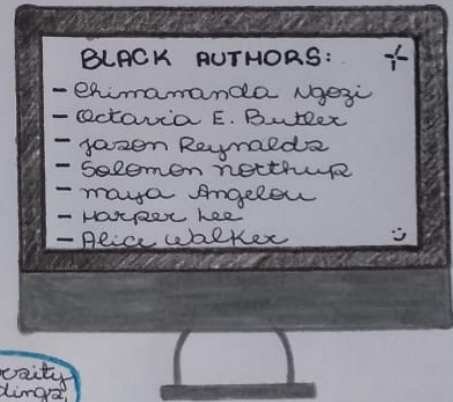 BLACK AUTHORS:
- Chimamanda Ngozi
- Octavia E. Butler
- Jason Reynolds
- Solomon Northup
- Maya Angelou
- Harper Lee
- Alice Walker